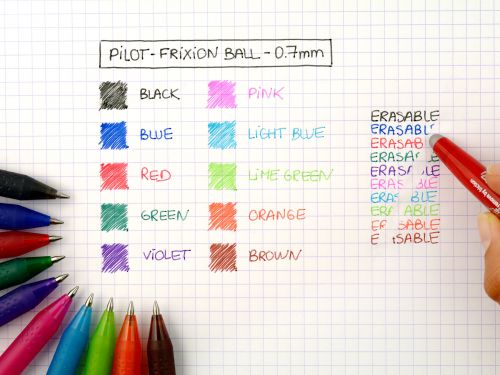 PILOT - FRIXION BALL - 0.7mm
BLACK
BLUE
RED
GREEN
VIOLET
PINK
LIGHT BLUE
LIME GREEN
ORANGE
BROWN
ERASABLE
ERASABL
ERASAB
ERASA
ERAS BLE
ERAS BLE
ERA BLE
ERA ABLE
ER SABLE
E ISABLE